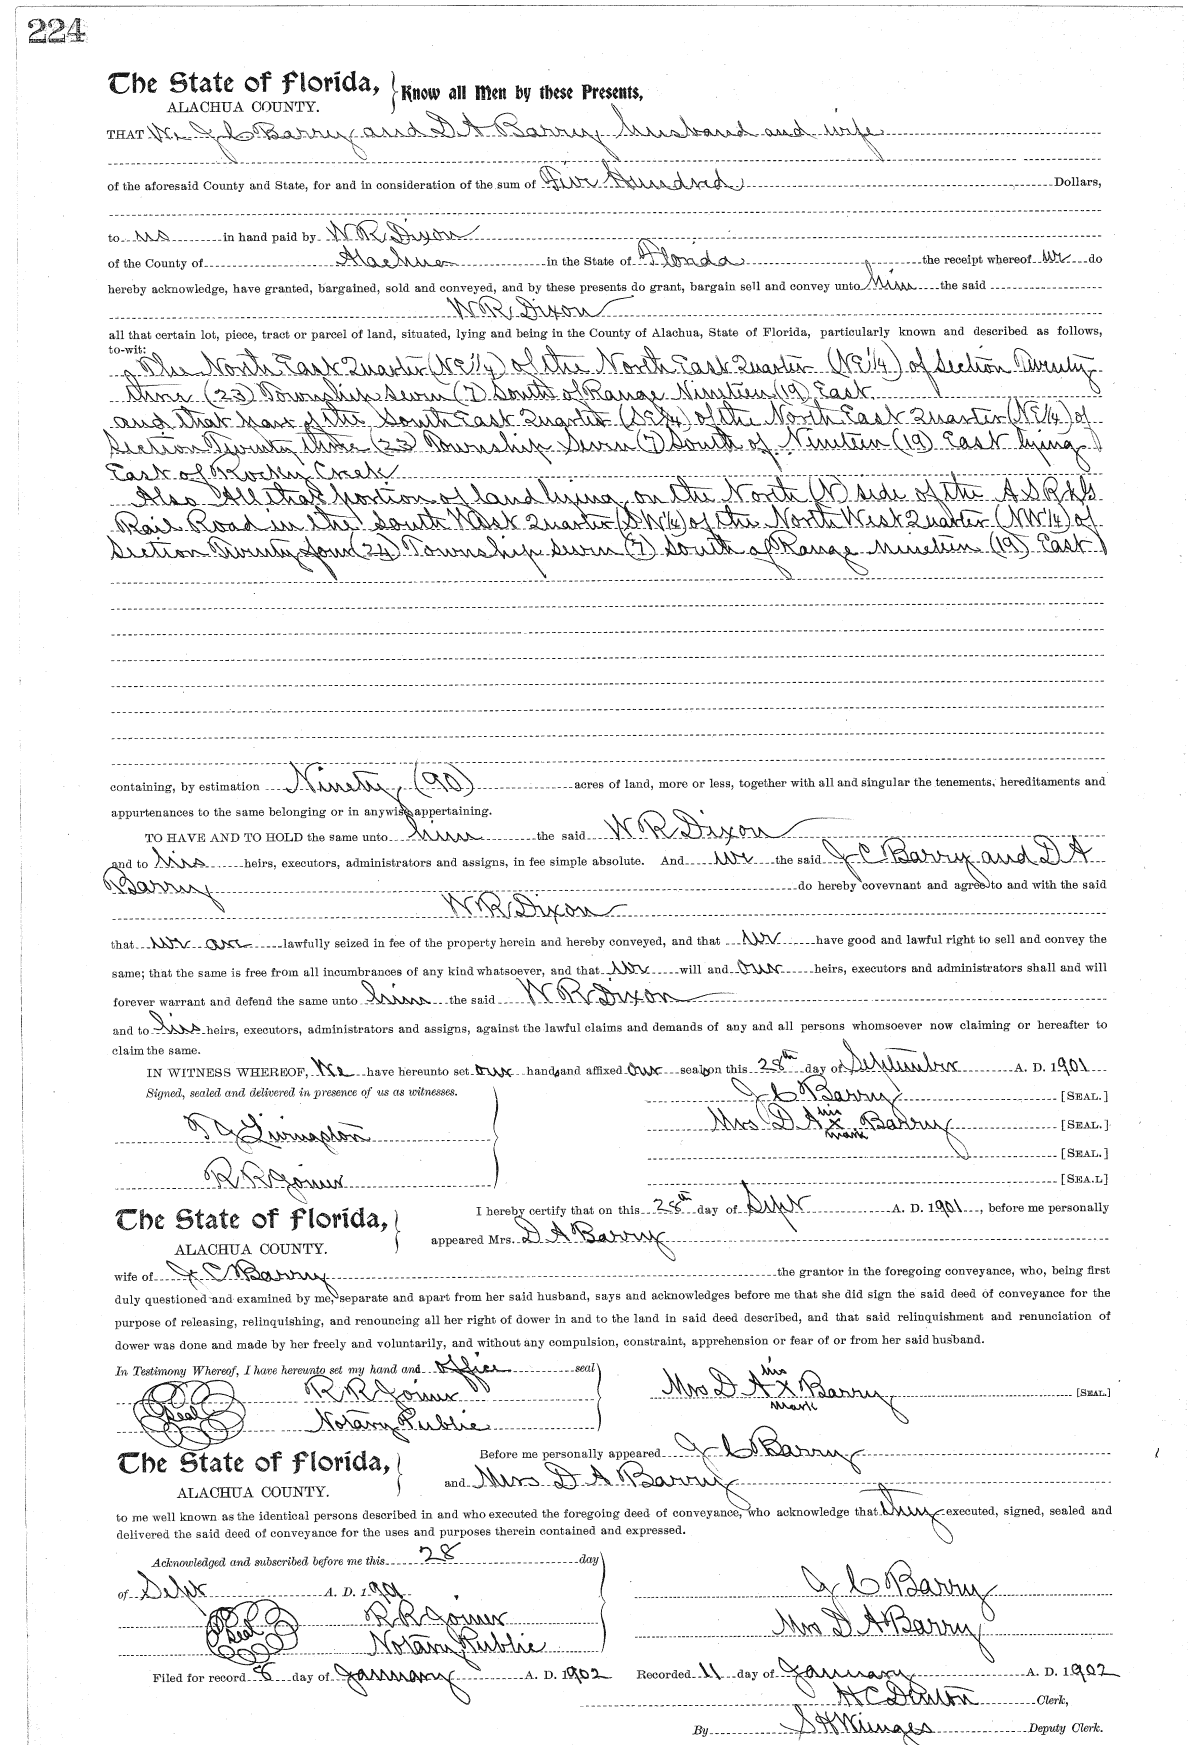 224
The State of Florida, Know all Men by these Presents,
ALACHUA COUNTY.
THAT We J C Barry and D A Barry husband and wife
of the aforesaid County and State, for and in consideration of the sum of Five Hundred Dollars,
to us in hand paid by W R Dixon
of the County of Alachua in the State of Florida the receipt whereof we do
hereby acknowledge, have granted, bargained, sold and conveyed, and by these presents do grant, bargain sell and convey unto him the said
W R Dixon
all that certain lot, piece, tract or parcel of land, situated, lying and being in the County of Alachua, State of Florida, particularly known and described as follows,
to-wit:
The North East Quarter (NE1/4) of the North East Quarter (NE1/4) of Section Twenty
three (23) Township seven (7) South of Range Nineteen (19) East
and that part of the South East Quarter (SE1/4) of the North East Quarter (NE1/4) of
Section Twenty three (23 Township Seven (7) South of Nineteen (19) East lying
East of Rocky Creek
Also All that portion of land lying on the North (N) side of the
Rail Road in the South West Quarter (SW1/4) of the North West Quarter (NW1/4) of
Section Twenty four (24) Township seven (7) South of Range nineteen (19) East
containing, by estimation Ninety (90) acres of land, more or less, together with all and singular the tenements, hereditaments and
appurtenances to the same belonging or in anywise appertaining.
TO HAVE AND TO HOLD the same unto him the said W R Dixon
and to his heirs, executors, administrators and assigns, in fee simple absolute. And we the said J C Barry and D A
Barry do hereby covevnant and agree to and with the said
W R Dixon
that we are lawfully seized in fee of the property herein and hereby conveyed, and that we have good and lawful right to sell and convey the
same; that the same is free from all incumbrances of any kind whatsoever, and that we will and our heirs, executors and administrators shall and will
forever warrant and defend the same unto him the said W R Dixon
and to his heirs, executors, administrators and assigns, against the lawful claims and demands of any and all persons whomsoever now claiming or hereafter to
claim the same.
IN WITNESS WHEREOF, We have hereunto set our hands and affixed our seals on this 28th day of September A. D. 1901
Signed, sealed and delivered in presence of us as witnesses. J C Barry [SEAL.]
his
Mrs D A x Barry [SEAL.]
mark
T J Livingston [SEAL.]
R R Joiner [SEA.L]
The State of Florida, I hereby certify that on this 28th day of Sept A. D. 1901, before me personally
ALACHUA COUNTY. appeared Mrs. D A Barry
wife of J C Barry the grantor in the foregoing conveyance, who, being first
duly questioned and examined by me, separate and apart from her said husband, says and acknowledges before me that she did sign the said deed of conveyance for the
purpose of releasing, relinquishing, and renouncing all her right of dower in and to the land in said deed described, and that said relinquishment and renunciation of
dower was done and made by her freely and voluntarily, and without any compulsion, constraint, apprehension or fear of or from her said husband.
In Testimony Whereof, I have hereunto set my hand and office seal
his
R R Joiner Mrs D A x Barry [SEAL.]
mark
Seal Notary Public
The State of Florida, Before me personally appeared J C Barry
ALACHUA COUNTY. and Mrs D A Barry
to me well known as the identical persons described in and who executed the foregoing deed of conveyance, who acknowledge that they executed, signed, sealed and
delivered the said deed of conveyance for the uses and purposes therein contained and expressed.
Acknowledged and subscribed before me this 28 day
of Sept A. D. 1901 J C Barry
Seal R R Joiner Mrs D A Barry
Notary Public
Filed for record 8 day of January A. D. 1902 Recorded 11 day of January A. D. 1902
H C Denton Clerk,
By S H Wienges Deputy Clerk.